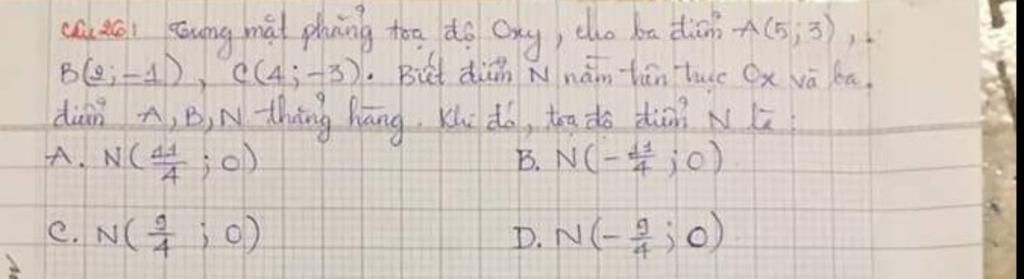 Câu 26: Trong mặt phẳng toạ độ Oxy, cho ba điểm A(5;3),
B(2;-1), C(4;-3). Biết điểm N nằm trên trục Ox và ba
điểm A,B,N thẳng hàng. Khi đó, toạ độ điểm N là:
A. N(11/4;0) B. N(-11/4;0)
C. N(9/4;0) D. N(-9/4;0)